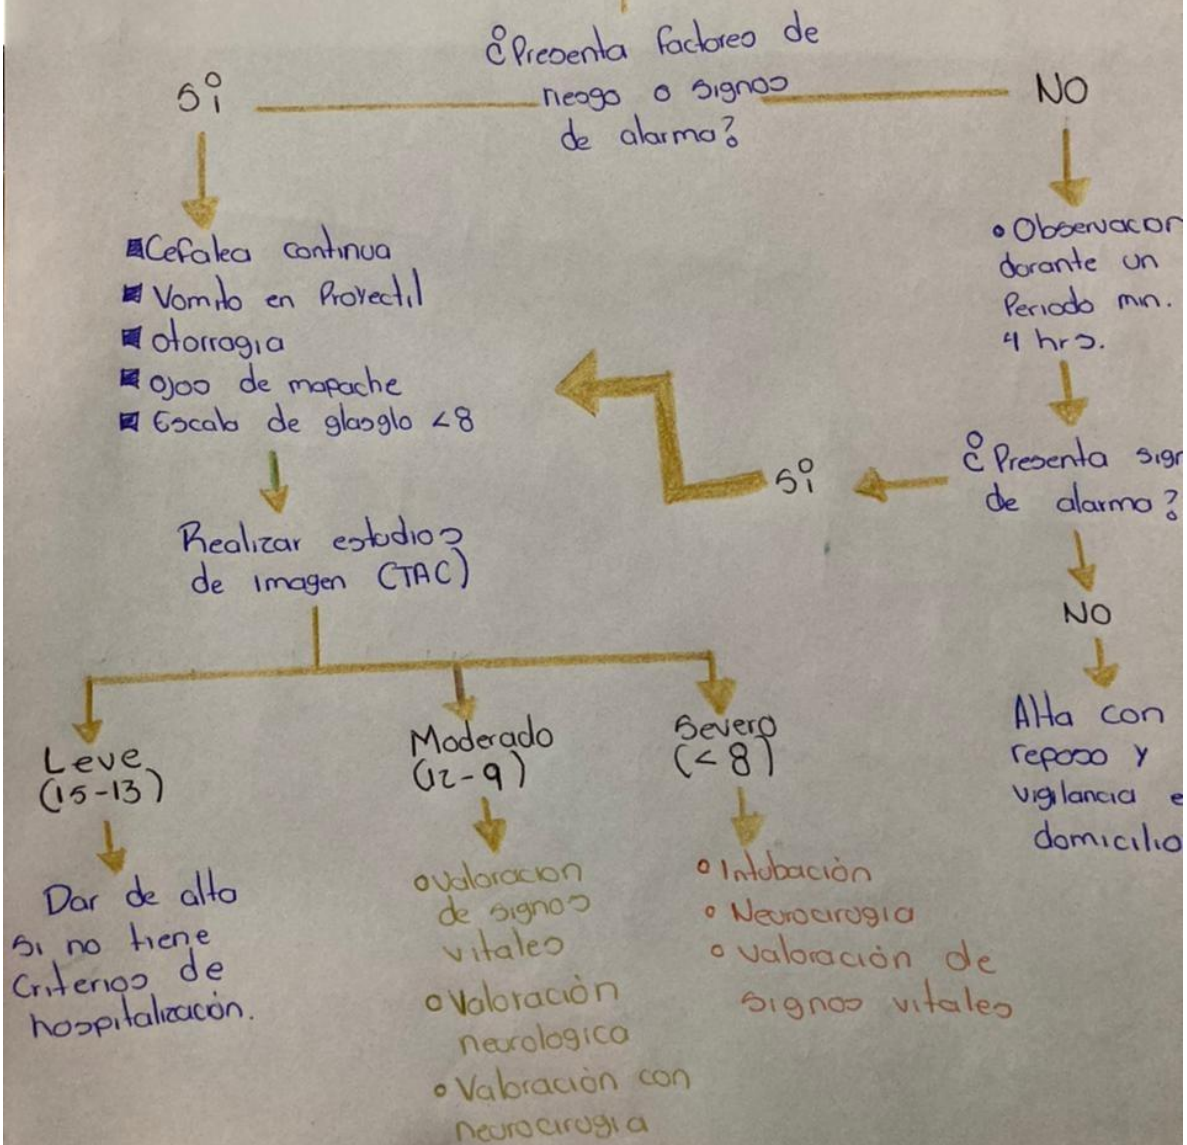 ¿Presenta factores de
riesgo o signos
de alarma?
Sí
NO
Cefalea continua
Vomito en Proyectil
otorragia
ojos de mapache
Escala de glasglo <8
Realizar estudios
de imagen (TAC)
Leve
(15-13)
Dar de alta
si no tiene
Criterios de
hospitalización.
Moderado
(12-9)
valoracion
de signos
vitales
Valoración
neurologica
Valoración con
neurocirugia
Severo
(<8)
Intubación
Neurocirugia
valoración de
signos vitales
• Observacon
durante un
Periodo min.
4 hrs.
¿Presenta sign
de alarma?
Sí
NO
Alta con
reposo y
vigilancia e
domicilio